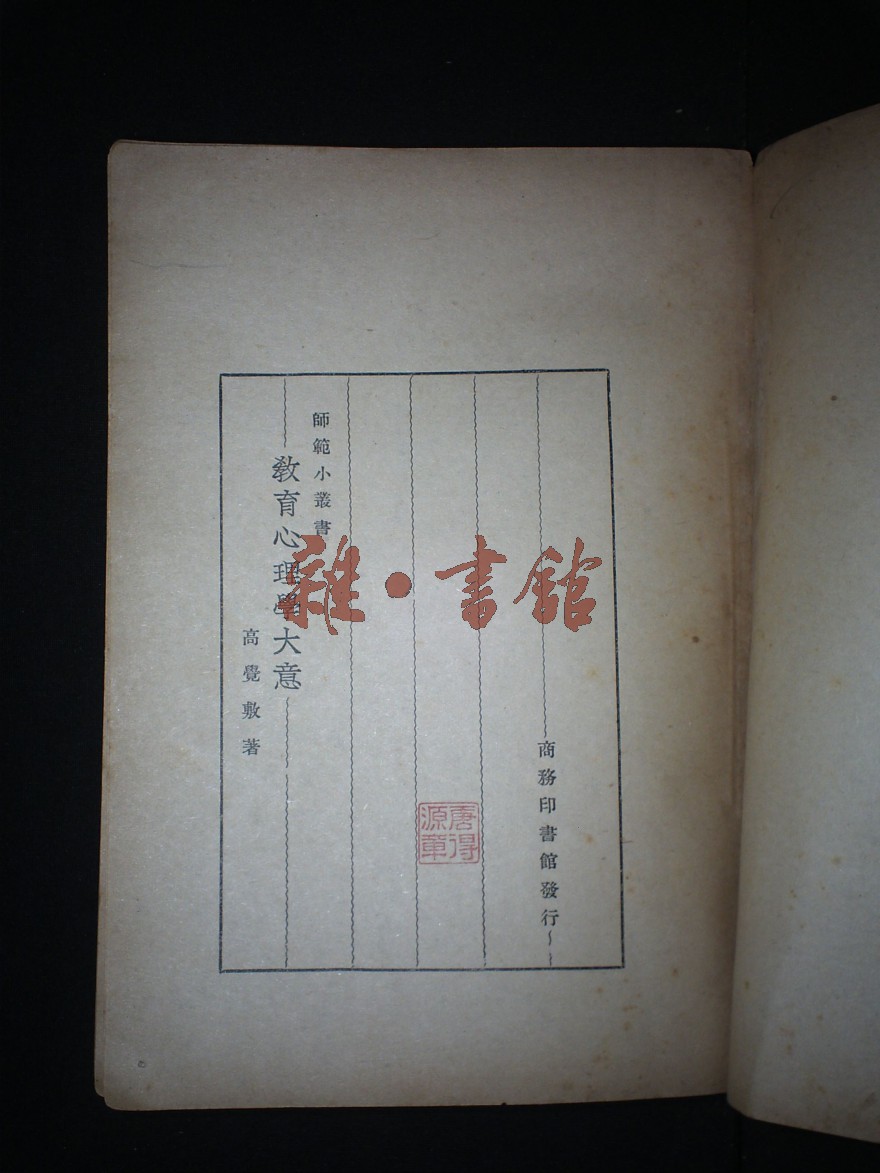 師範小叢書
教育心理學大意
高覺敷著
商務印書館發行
唐得源章
雜·書館